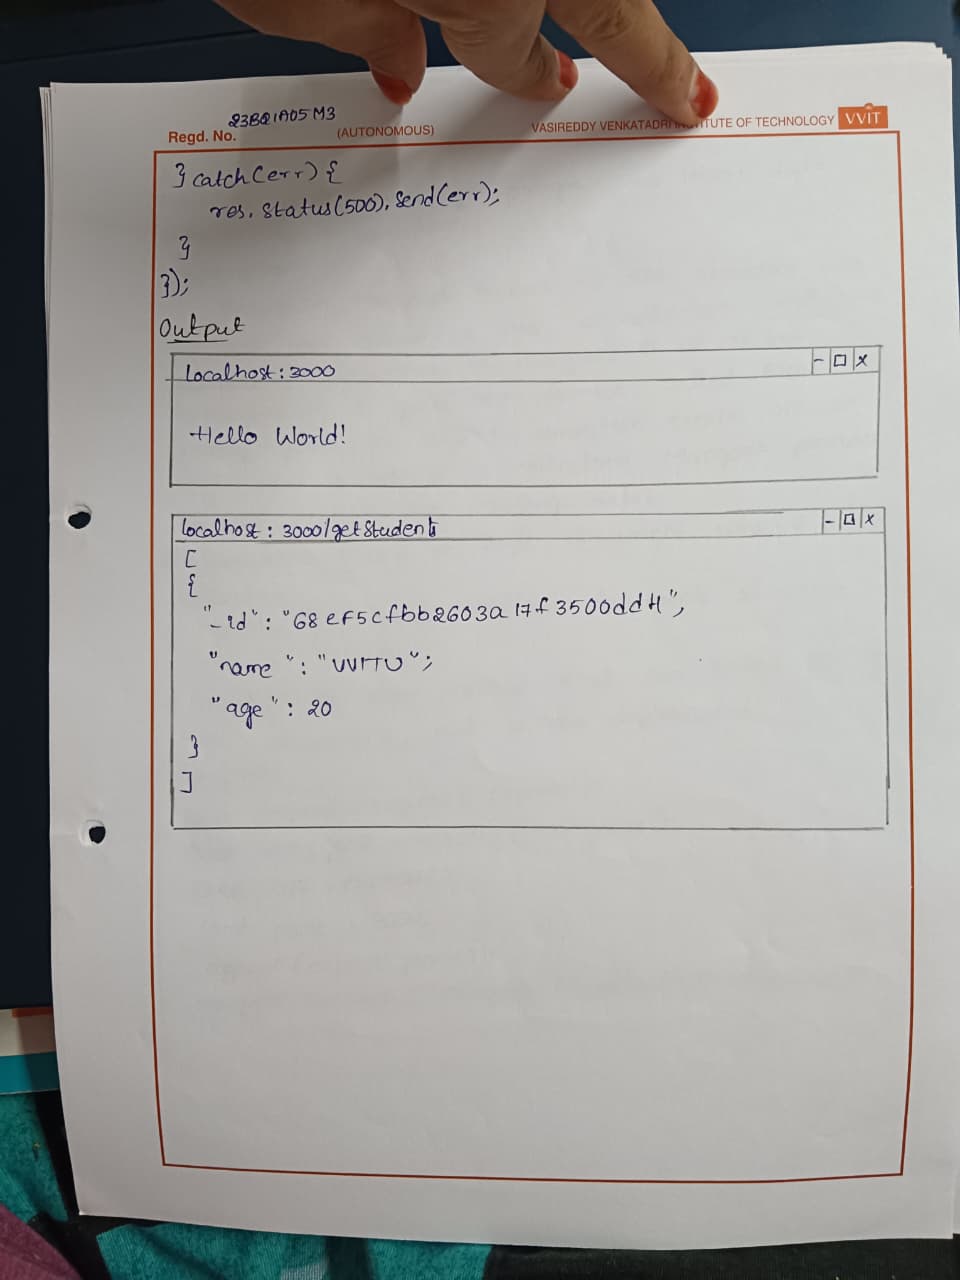 23BQ1A05M3
Regd. No. (AUTONOMOUS) VASIREDDY VENKATADRI INSTITUTE OF TECHNOLOGY VVIT
} catch(err) {
res. status(500). send(err);
}
});
Output
localhost: 3000 - □ x
Hello World!
localhost: 3000/getStudents - □ x
[
{
"_id": "68ef5cfbb2603a17f3500dd4",
"name": "VVITU";
"age": 20
}
]